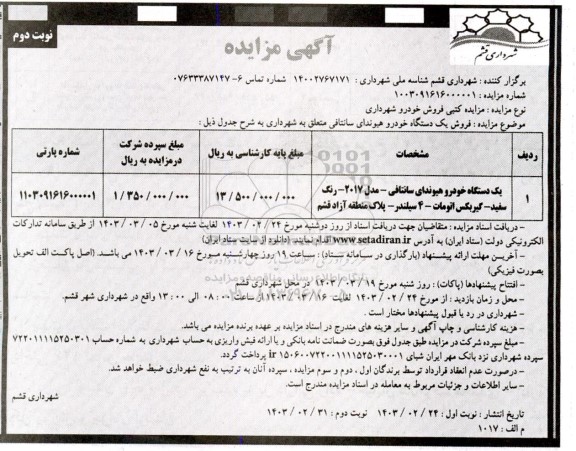 نوبت دوم
آگهی مزایده
شهرداری قشم
برگزار کننده : شهرداری قشم شناسه ملی شهرداری : ۱۴۰۰۲۷۶۷۱۷۱ شماره تماس ۶- ۰۷۶۳۳۳۸۷۱۴۷
شماره مزایده : ۱۰۰۳۰۹۱۶۱۶۰۰۰۰۰۱
نوع مزایده : مزایده کتبی فروش خودرو شهرداری
موضوع مزایده : فروش یک دستگاه خودرو هیوندای سانتافی متعلق به شهرداری به شرح جدول ذیل :
ردیف مشخصات مبلغ پایه کارشناسی به ریال مبلغ سپرده شرکت درمزایده به ریال شماره پارتی
۱ یک دستگاه خودرو هیوندای سانتافی – مدل ۲۰۱۷– رنگ سفید– گیربکس اتومات – ۴ سیلندر – پلاک منطقه آزاد قشم ۱۳/۵۰۰/۰۰۰/۰۰۰ ۱/۳۵۰/۰۰۰/۰۰۰ ۱۱۰۳۰۹۱۶۱۶۰۰۰۰۰۱
– دریافت اسناد مزایده : متقاضیان جهت دریافت اسناد از روز دوشنبه مورخ ۲۴ / ۰۲ / ۱۴۰۳ لغایت شنبه مورخ ۰۵ / ۰۳ / ۱۴۰۳ از طریق سامانه تدارکات
الکترونیکی دولت (ستاد ایران) به آدرس www.setadiran.ir اقدام نمایند. (دانلود از سایت ستاد ایران)
– آخرین مهلت ارائه پیشنهاد (بارگذاری در سامانه ستاد) : ساعت ۱۹ روز چهارشنبه مورخ ۱۶ / ۰۳ / ۱۴۰۳ می باشد. (اصل پاکت الف تحویل
بصورت فیزیکی)
– افتتاح پیشنهادها (پاکات) : روز شنبه مورخ ۱۹ / ۰۳ / ۱۴۰۳ در محل شهرداری قشم
– محل و زمان بازدید : از مورخ ۲۴ / ۰۲ / ۱۴۰۳ لغایت ۱۶ / ۰۳ / ۱۴۰۳ از ساعت ۰۸:۰۰ الی ۱۳:۰۰ واقع در شهرداری شهر قشم.
– شهرداری در رد یا قبول پیشنهادها مختار است .
– هزینه کارشناسی و چاپ آگهی و سایر هزینه های مندرج در اسناد مزایده بر عهده برنده مزایده می باشد.
– مبلغ سپرده شرکت در مزایده طبق جدول فوق بصورت ضمانت نامه بانکی و یا ارائه فیش واریزی به حساب شهرداری به شماره حساب ۷۲۲۰۱۱۱۱۵۲۵۰۳۰۱
سپرده شهرداری نزد بانک مهر ایران شبای ir ۱۵۰۶۰۰۷۲۲۰۰۱۱۱۱۵۲۵۰۳۰۰۰۱ پرداخت گردد.
– درصورت عدم انعقاد قرارداد توسط برندگان اول ، دوم و سوم مزایده ، سپرده آنان به ترتیب به نفع شهرداری ضبط خواهد شد.
– سایر اطلاعات و جزئیات مربوط به معامله در اسناد مزایده مندرج است.
شهرداری قشم
تاریخ انتشار : نوبت اول : ۲۴ / ۰۲ / ۱۴۰۳ نوبت دوم : ۳۱ / ۰۲ / ۱۴۰۳
م الف : ۱۰۱۷